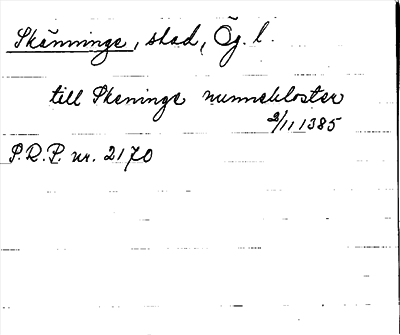 Skänninge, stad, Ög. l.
till Skeninge nunnekloster
2/11 1385
P.R.P. nr. 2170